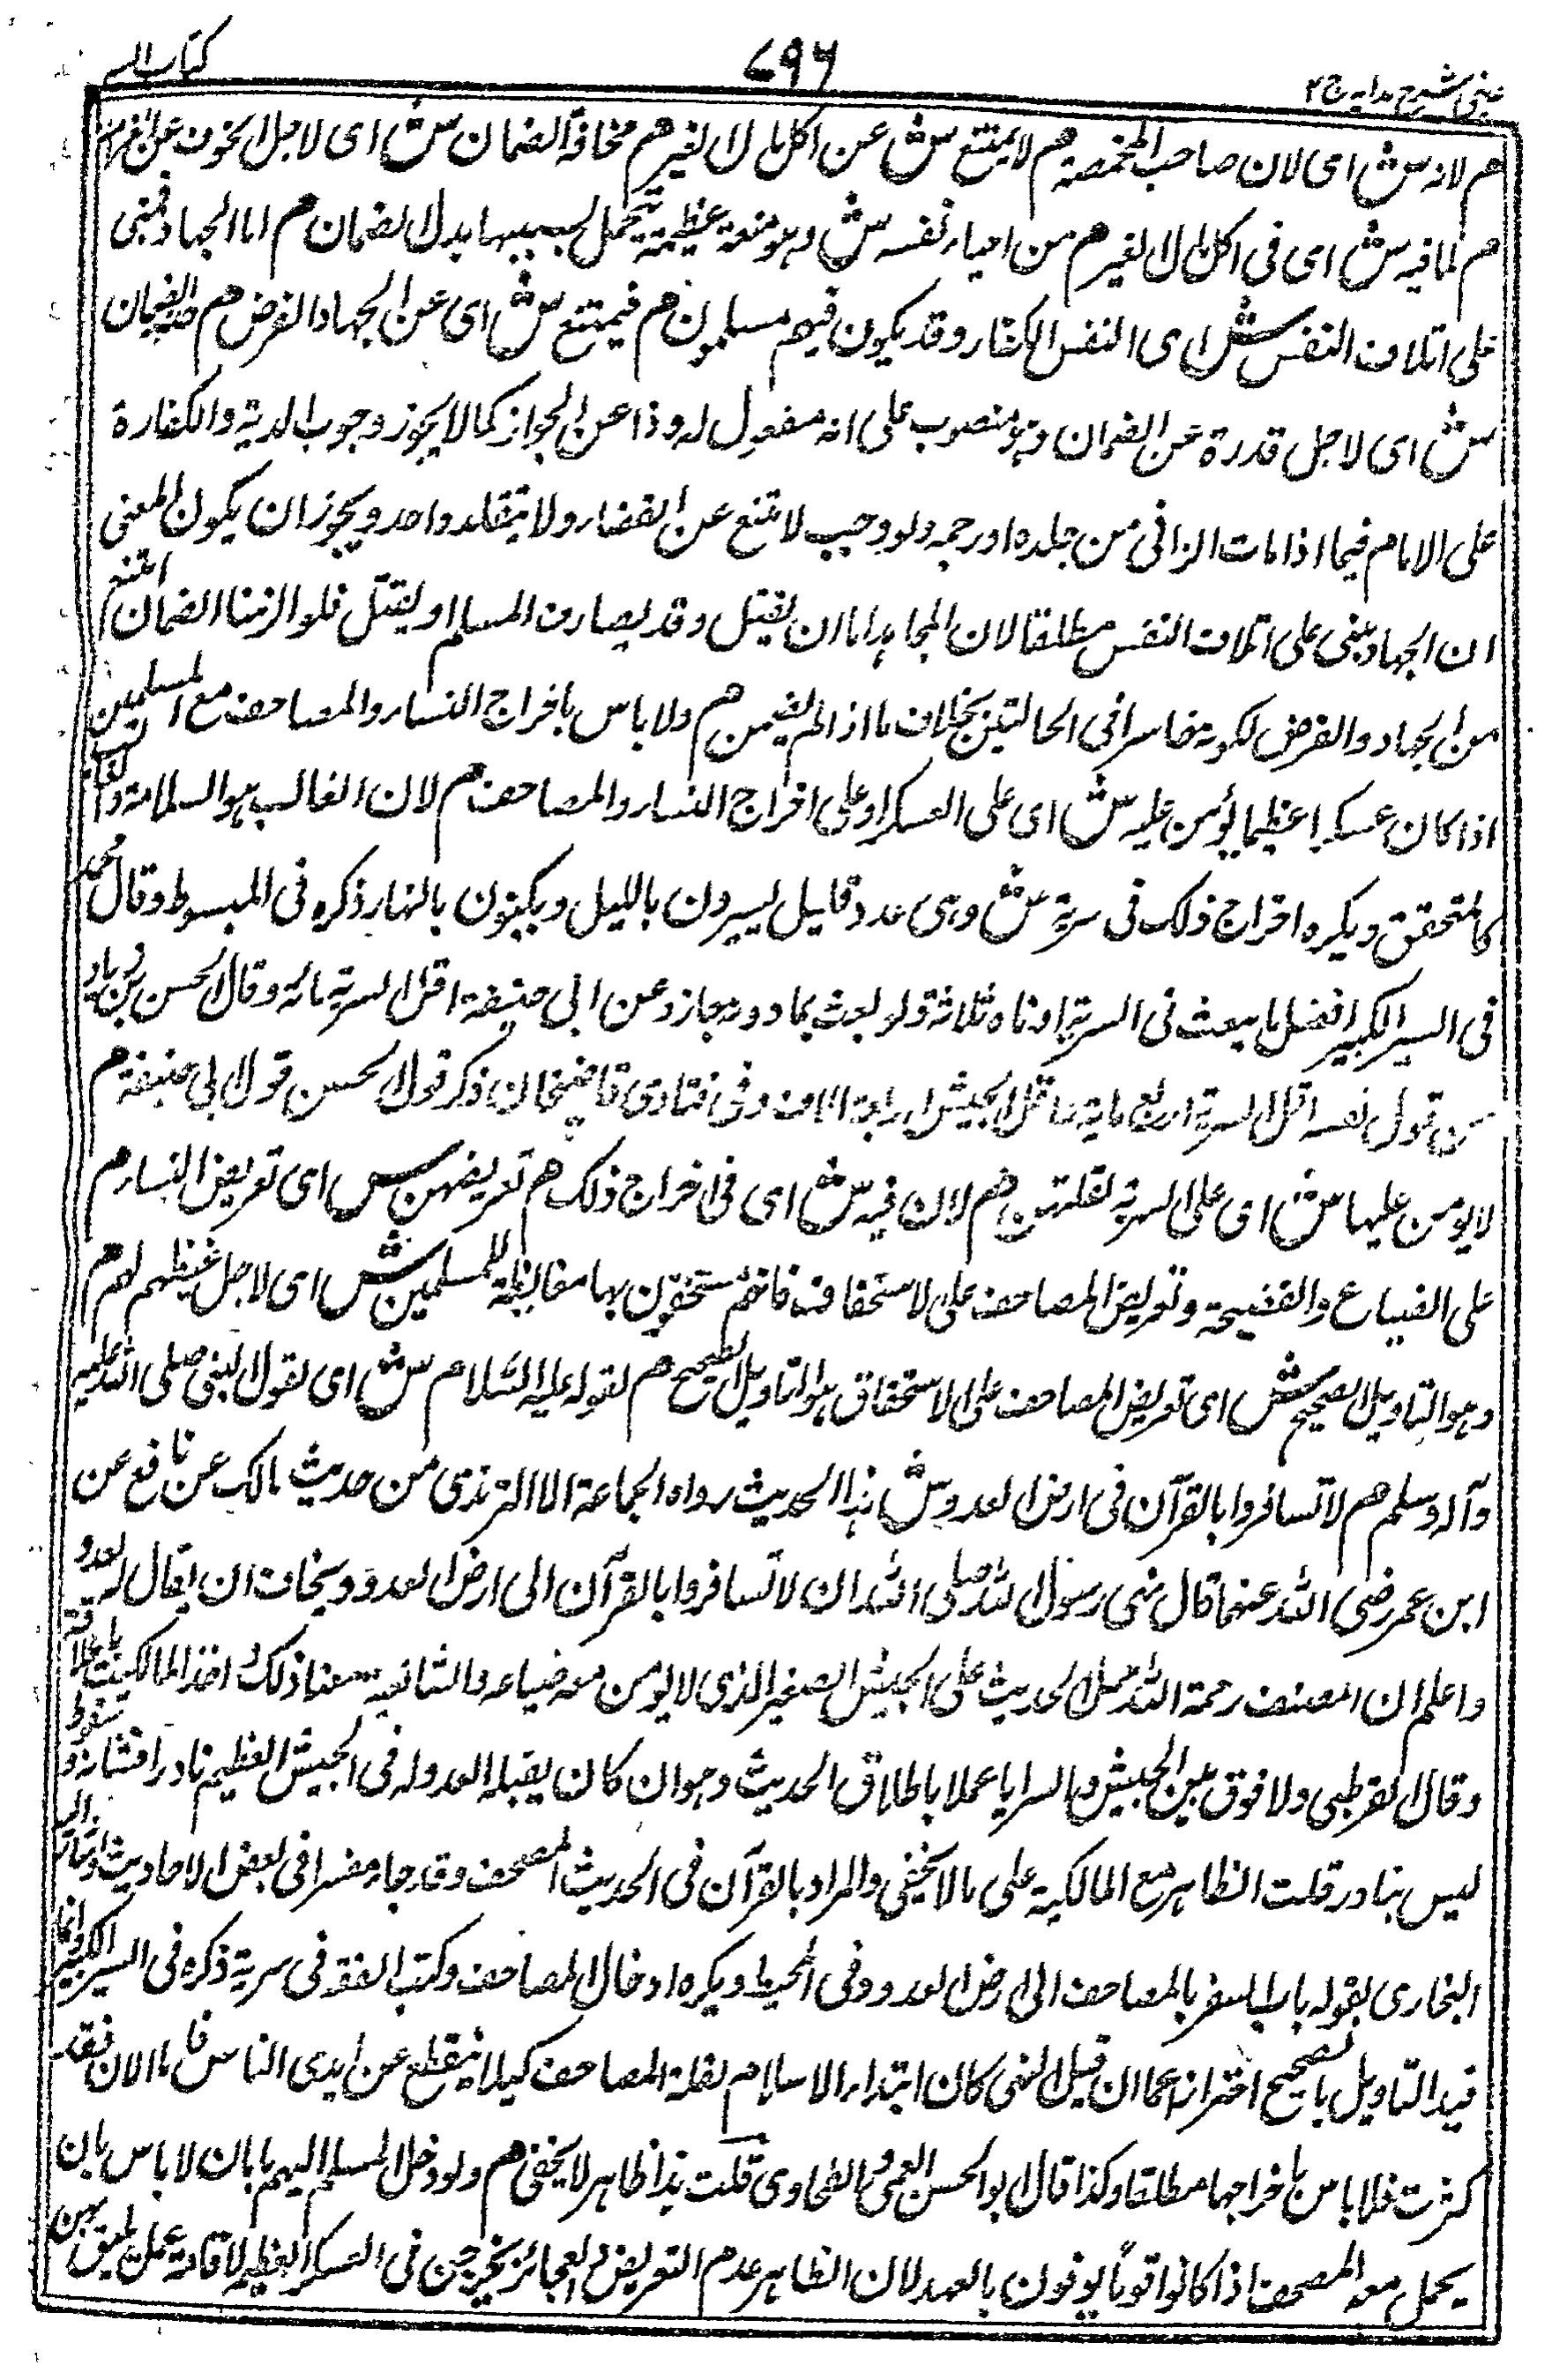 عینی شرح ہدایہ ج ۲
۷۹۶
کتاب السیر
م لانه ش ای لان صاحب المخمصة م لا یمتنع ش عن اکل مال الغیر م مخافة الضمان ش ای لاجل الخوف عن الغرم
م لما فیه ش ای فی اکل مال الغیر م من احیاء نفسه ش وہو منفعة عظیمة یتحمل بسببہا بدل الضمان م اما الجہاد فمبنی
علی اتلاف النفس ش ای النفس الکفار وقد یکون فیہم مسلمون م فیمتنع ش ای عن الجہاد الفرض م حذر الضمان
ش ای لاجل قدرة عن الضمان وہو منصوب علی انه مفعول له وذا عن الجواز کما لا یجوز وجوب الدیة والکفارة
علی الامام فیما اذا مات الزانی من جلده او رجمه ولو وجب لامتنع عن القضاء ولا یتقلد واحد ویجوز ان یکون المعنی
ان الجہاد مبنی علی اتلاف النفس مطلقا لان المجاہد اما ان یقتل وقد یصادف المسلم او یقتل فلو الزمنا الضمان امتنع
من الجہاد والفرض لکونه خاسرا فی الحالتین بخلاف ما اذا لم یضمن م ولا باس باخراج النساء والمصاحف مع المسلمین
اذا کان عسکرا عظیما یؤمن علیه ش ای علی العسکر او علی اخراج النساء والمصاحف م لان الغالب ہو السلامة والغالب
کالمتحقق ویکره اخراج ذلک فی سریة ش وہی عدد قلیل یسیرون باللیل ویکمنون بالنہار ذکره فی المبسوط وقال محمد
فی السیر الکبیر افضل ما یبعث فی السریة ادناه ثلاثة ولو بعث بما دونه جاز وعن ابی حنیفة اقل السریة مائة وقال الحسن بن زیاد
من قول نفسه اقل السریة اربع مایة واقل الجیش اربعة الاف وفی فتاوی قاضیخان ذکر قول الحسن قول ابی حنیفة م
لا یومن علیہا ش ای علی السریة لقلتہن م لان فیه ش ای فی اخراج ذلک م تعریضہن ش ای تعریض النساء م
علی الضیاع والفضیحة وتعریض المصاحف علی الاستخفاف فانہم یستخفون بہا مغایظة للمسلمین ش ای لاجل غیظہم لہم م
وہو التاویل الصحیح ش ای تعریض المصاحف علی الاستخفاف ہو التاویل الصحیح م لقوله علیه السلام ش ای لقول النبی صلی الله علیه
وآله وسلم م لا تسافروا بالقرآن فی ارض العدو ش ہذا الحدیث رواه الجماعة الا الترمذی من حدیث مالک عن نافع عن
ابن عمر رضی الله عنہما قال نہی رسول الله صلی الله ان لا تسافروا بالقرآن الی ارض العدو ویخاف ان یناله العدو
واعلم ان المصنف رحمة الله حمل الحدیث علی الجیش الصغیر الذی لا یومن معه ضیاعه والشافعیة معنا ذلک واخذ المالکیة باطلاقه
وقال القرطبی ولا فرق بین الجیش والسرایا عملا باطلاق الحدیث وہو ان کان یقبله العدو له فی الجیش العظیم نادرا فنسیانه وسقوطه
لیس بنادر قلت الظاہر مع المالکیة علی ما لا یخفی والمراد بالقرآن فی الحدیث المصحف وقد جاء مفسرا فی بعض الاحادیث واشار الیه
البخاری بقوله باب السفر بالمصاحف الی ارض العدو وفی المحیط ویکره ادخال المصاحف وکتب الفقه فی سریة ذکره فی السیر الکبیر وانما
قید التاویل بالصحیح احترازا عما ان قیل النہی کان ابتداء الاسلام لقلة المصاحف کیلا ینقطع عن ایدی الناس فاما الان فقد
کثرت فلا باس باخراجہا مطلقا وکذا قال ابو الحسن القمی والطحاوی قلت ہذا ظاہر لا یخفی م ولو دخل المسلم الیہم بامان لا باس بان
یحمل معه المصحف اذا کانوا قوما یوفون بالعہد لان الظاہر عدم التعریض م والعجائز یخرجن فی العسکر العظیم لاقامة عمل یلیق بہن